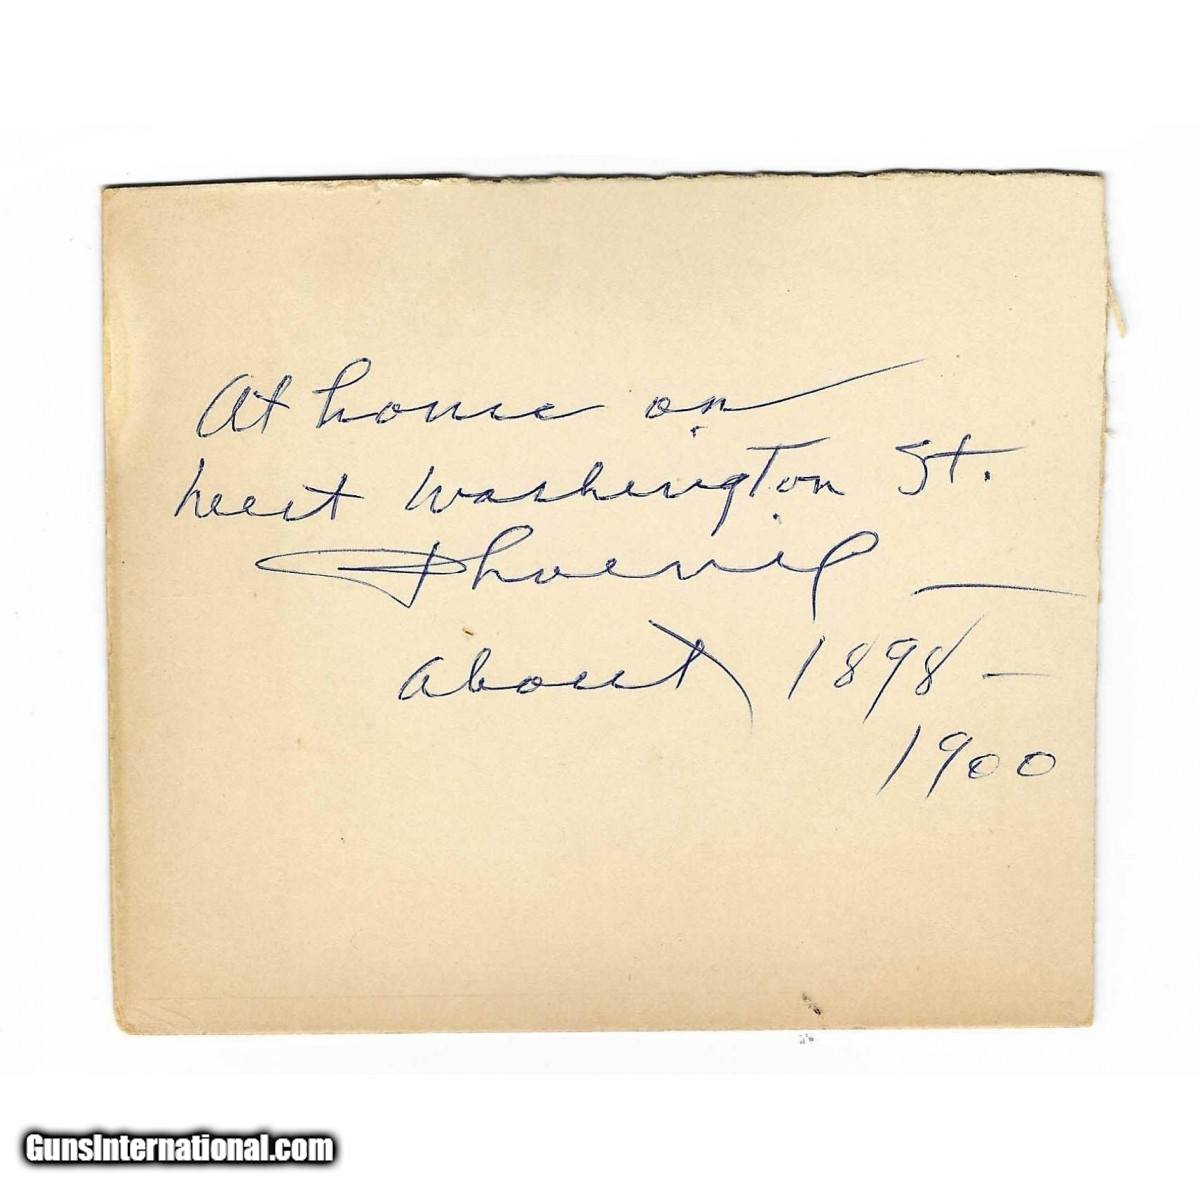 At home on
West Washington St.
Phoenix —
about 1898 –
1900
GunsInternational.com